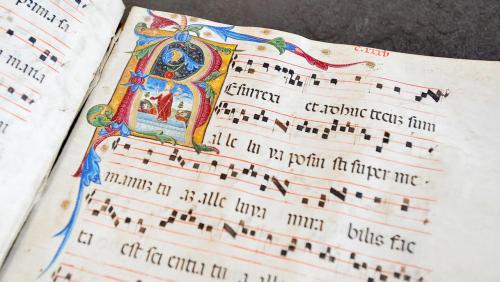 c. xxxv
Resurrexi et adhuc tecuz sum
alle lu ya posui sti super me
manuz tu az alle luya mira bilis fac
ta est sci entia tu a all